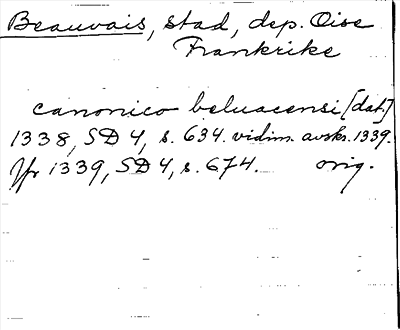 Beauvais, stad, dep. Oise
Frankrike
canonico beluacensi [dat.]
1338, SD 4, s. 634. vidim. avskr. 1339.
Jfr 1339, SD 4, s. 674. orig.